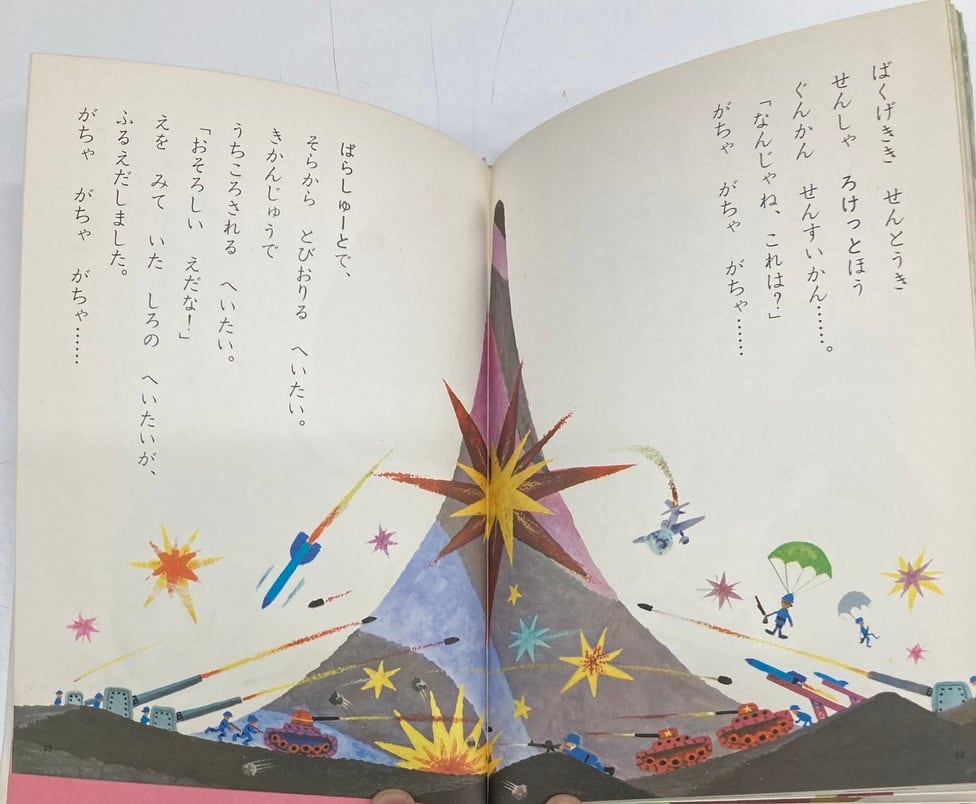 ばくげきき　せんとうき
せんしゃ　ろけっとほう
ぐんかん　せんすいかん……。
「なんじゃね、これは？」
がちゃ　がちゃ　がちゃ……
ぱらしゅーとで、
そらから　とびおりる　へいたい。
きかんじゅうで
うちころされる　へいたい。
「おそろしい　えだな！」
えを　みて　いた　しろの　へいたいが、
ふるえだしました。
がちゃ　がちゃ　がちゃ……